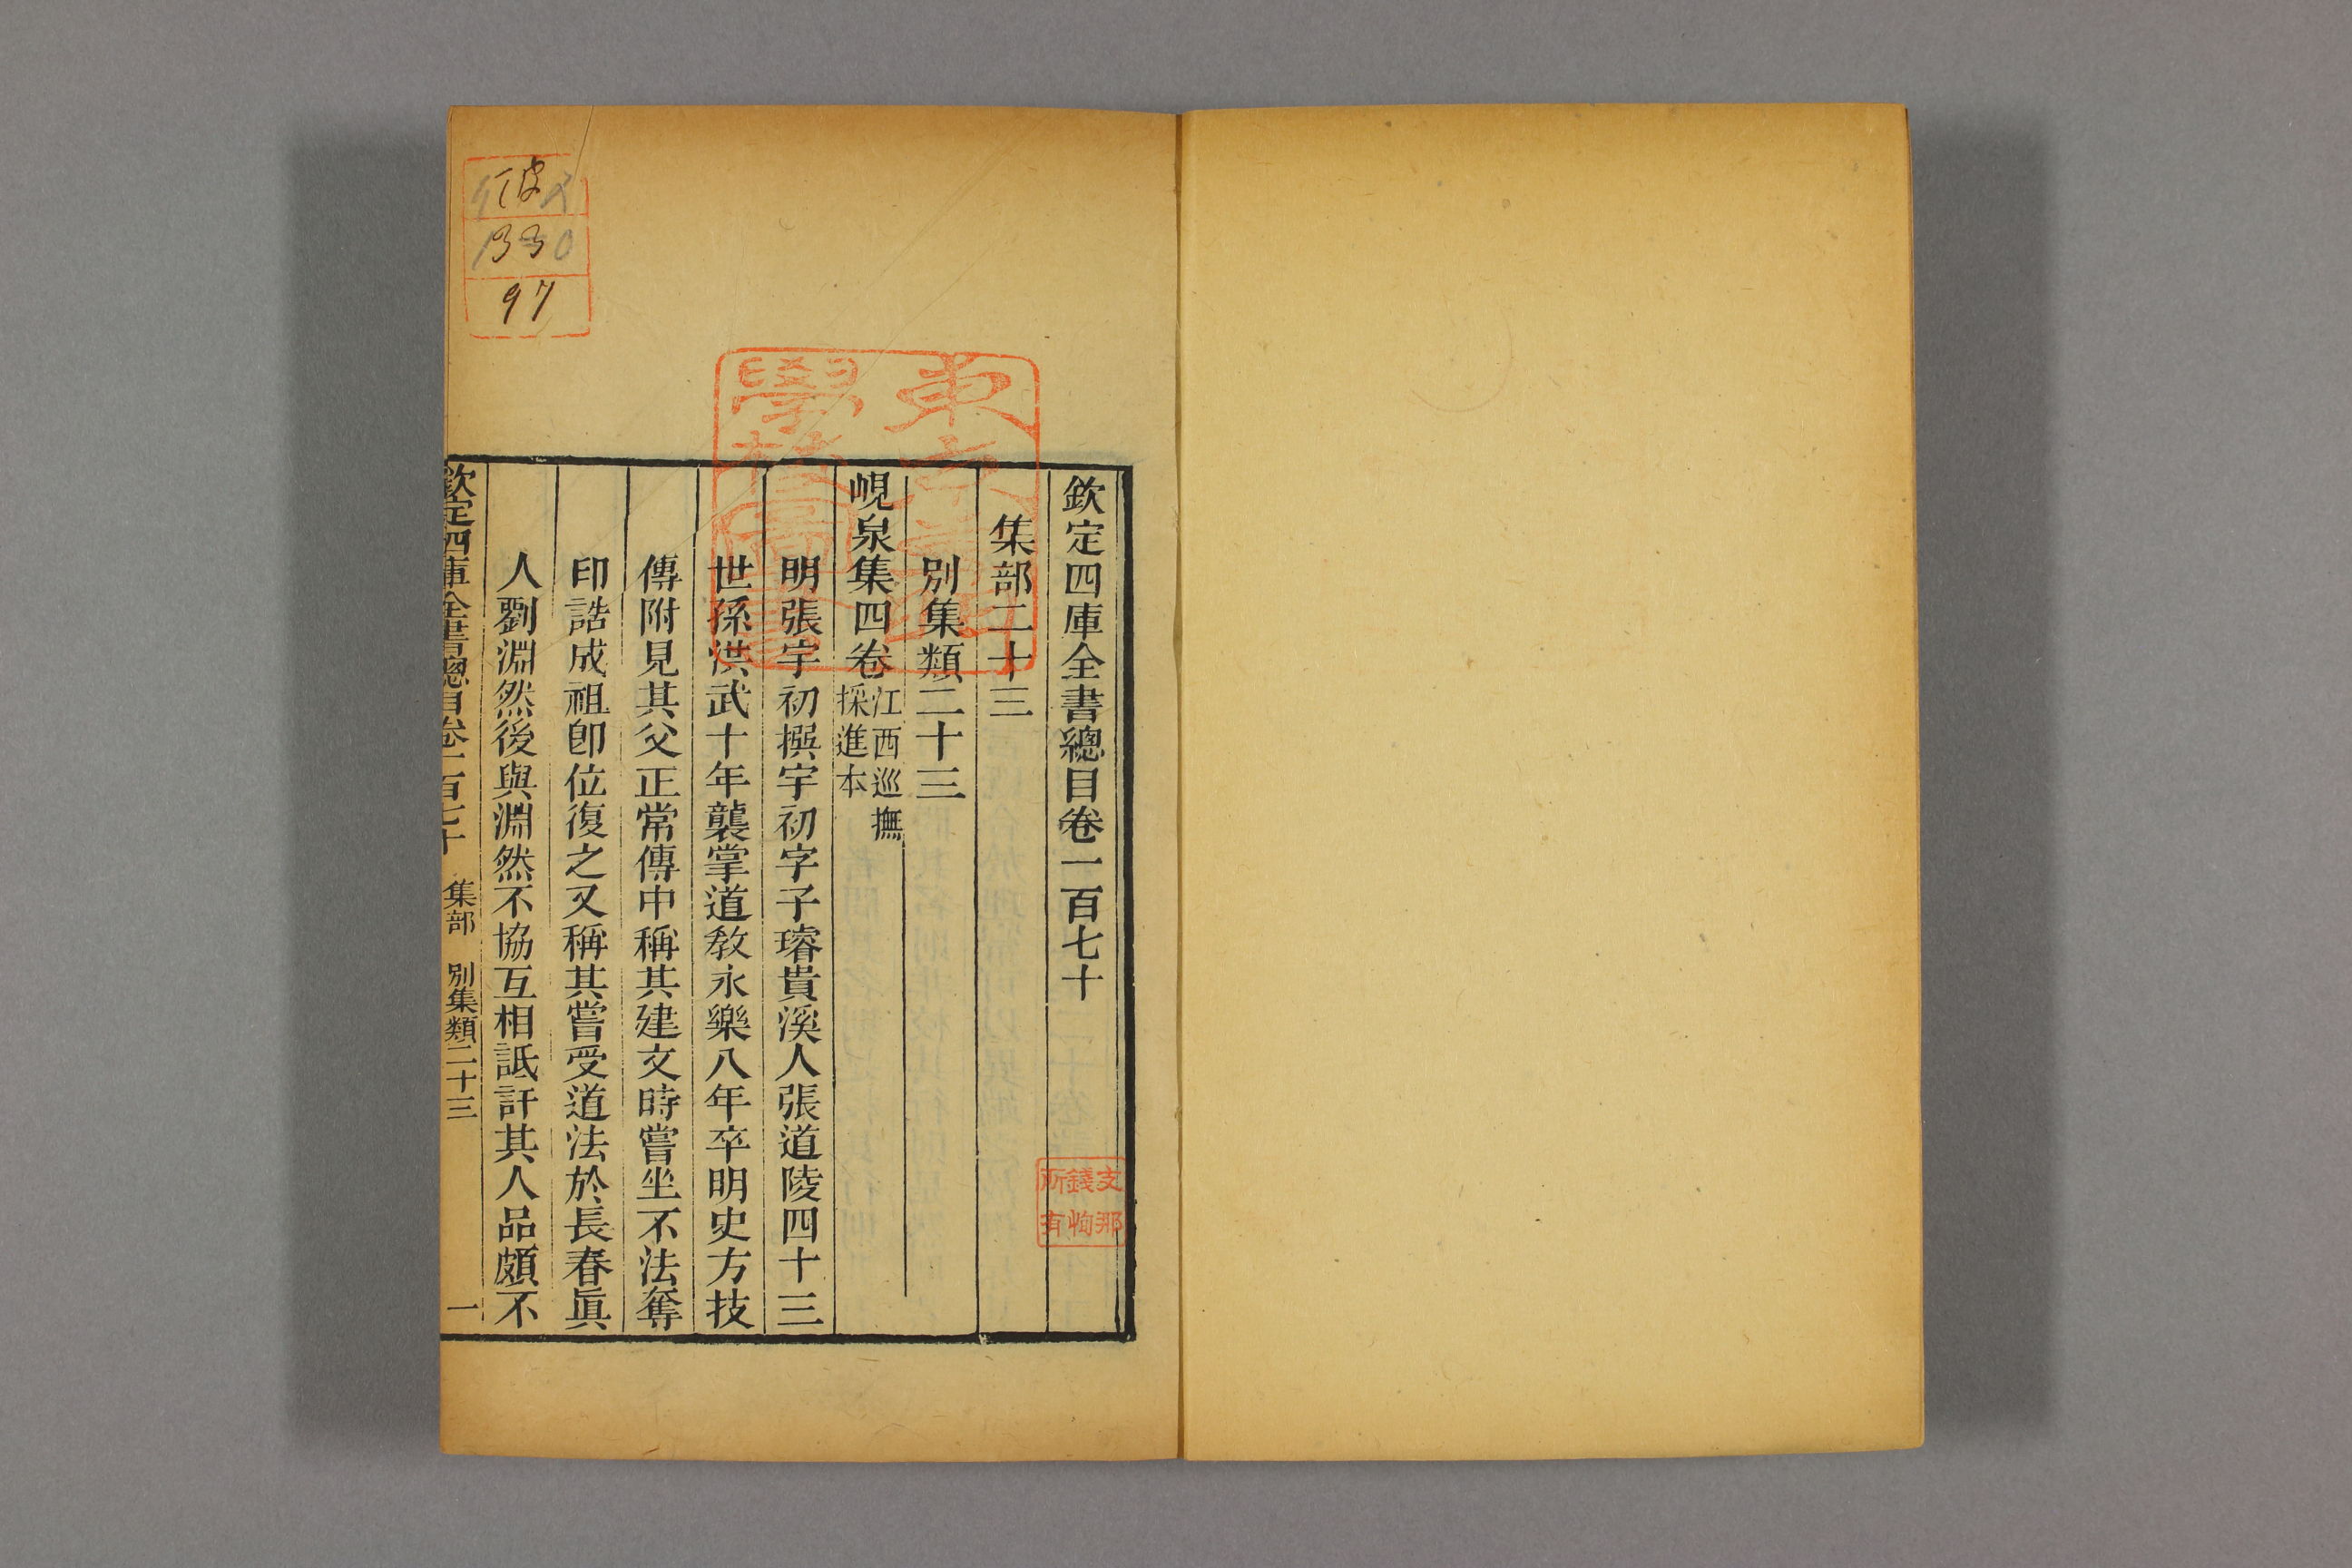 欽定四庫全書總目卷一百七十
集部二十三
別集類二十三
峴泉集四卷江西巡撫採進本
明張宇初撰宇初字子璿貴溪人張道陵四十三
世孫洪武十年襲掌道敎永樂八年卒明史方技
傳附見其父正常傳中稱其建文時嘗坐不法奪
印誥成祖卽位復之又稱其嘗受道法於長春眞
人劉淵然後與淵然不協互相詆訐其人品頗不
欽定四庫全書總目卷一百七十 集部 別集類二十三 一
97